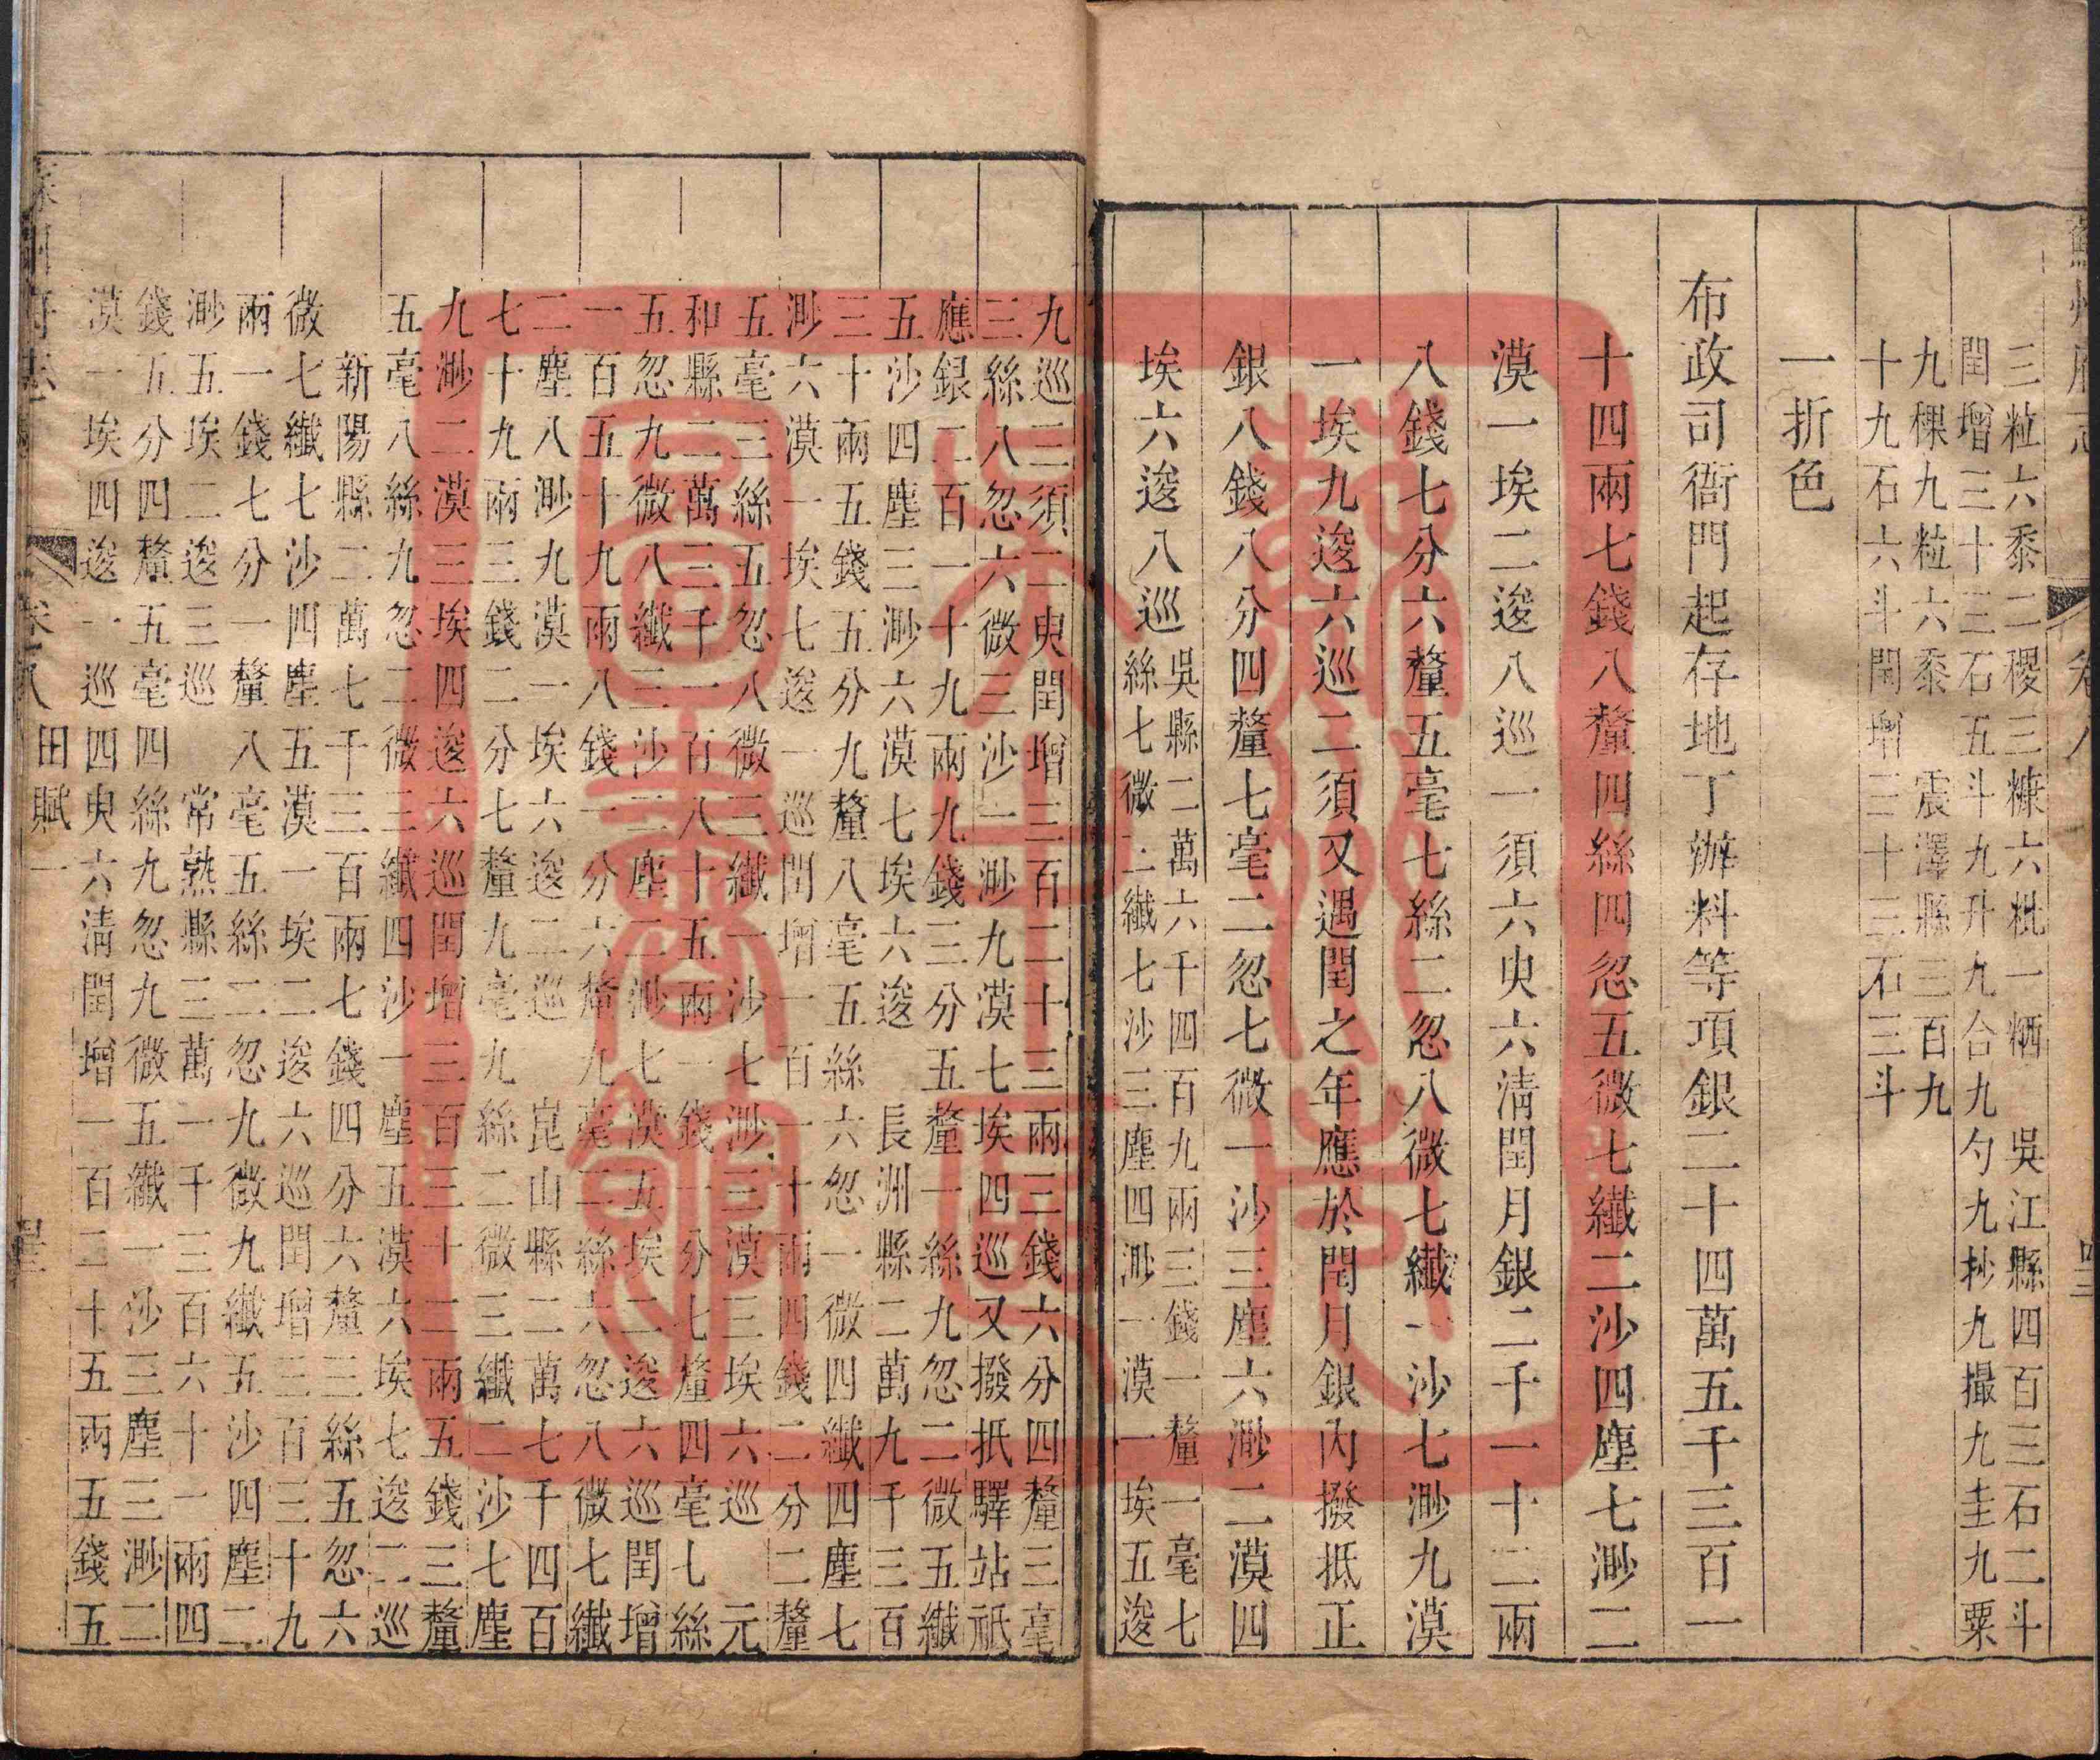 三粒六黍二稷三糠六粃一粞　吳江縣四百三石二斗
閏增三十三石五斗九升九合九勺九抄九撮九圭九粟
九稞九粒六黍　震澤縣三百九
十九石六斗閏增三十三石三斗
一折色
布政司衙門起存地丁辦料等項銀二十四萬五千三百一
十四兩七錢八釐四絲四忽五微七纖二沙四塵七渺二
漠一埃二逡八巡一須六臾六淸閏月銀二千一十二兩
八錢七分六釐五毫七絲二忽八微七纖一沙七渺九漠
一埃九逡六巡二須又遇閏之年應於閏月銀內撥抵正
銀八錢八分四釐七毫二忽七微一沙三塵六渺二漠四
埃六逡八巡
吳縣二萬六千四百九兩三錢一釐一毫七
絲七微二纖七沙三塵四渺一漠一埃五逡
九巡三須二臾閏增三百二十三兩三錢六分四釐三毫
三絲八忽六微三沙一渺九漠七埃四巡又撥抵驛站祇
應銀二百一十九兩九錢三分五釐一絲九忽二微五纖
五沙四塵三渺六漠七埃六逡　長洲縣二萬九千三百
三十兩五錢五分九釐八毫五絲六忽一微四纖四塵七
渺六漠一埃七逡一巡閏增一百一十兩四錢二分二釐
五毫三絲五忽八微三纖一沙七渺三漠三埃六巡　元
和縣二萬三千一百八十五兩一錢一分七釐四毫七絲
五忽九微八纖三沙二塵二渺七漠五埃二逡六巡閏增
一百五十九兩八錢一分六釐九毫二絲六忽八微七纖
二塵八渺九漠一埃六逡二巡　崑山縣二萬七千四百
七十九兩三錢二分七釐九毫九絲二微三纖二沙七塵
九渺二漠三埃四逡六巡閏增三百三十二兩五錢三釐
五毫八絲九忽二微三纖四沙一塵五漠六埃七逡二巡
新陽縣二萬七千三百兩七錢四分六釐三絲五忽六
微七纖七沙四塵五漠一埃二逡六巡閏增三百三十九
兩一錢七分一釐八毫五絲二忽九微九纖五沙四塵二
渺五埃二逡三巡　常熟縣三萬一千三百六十一兩四
錢五分四釐五毫四絲九忽九微五纖一沙三塵三渺二
漠一埃四逡一巡四臾六淸閏增一百二十五兩五錢五
卷八 田賦一